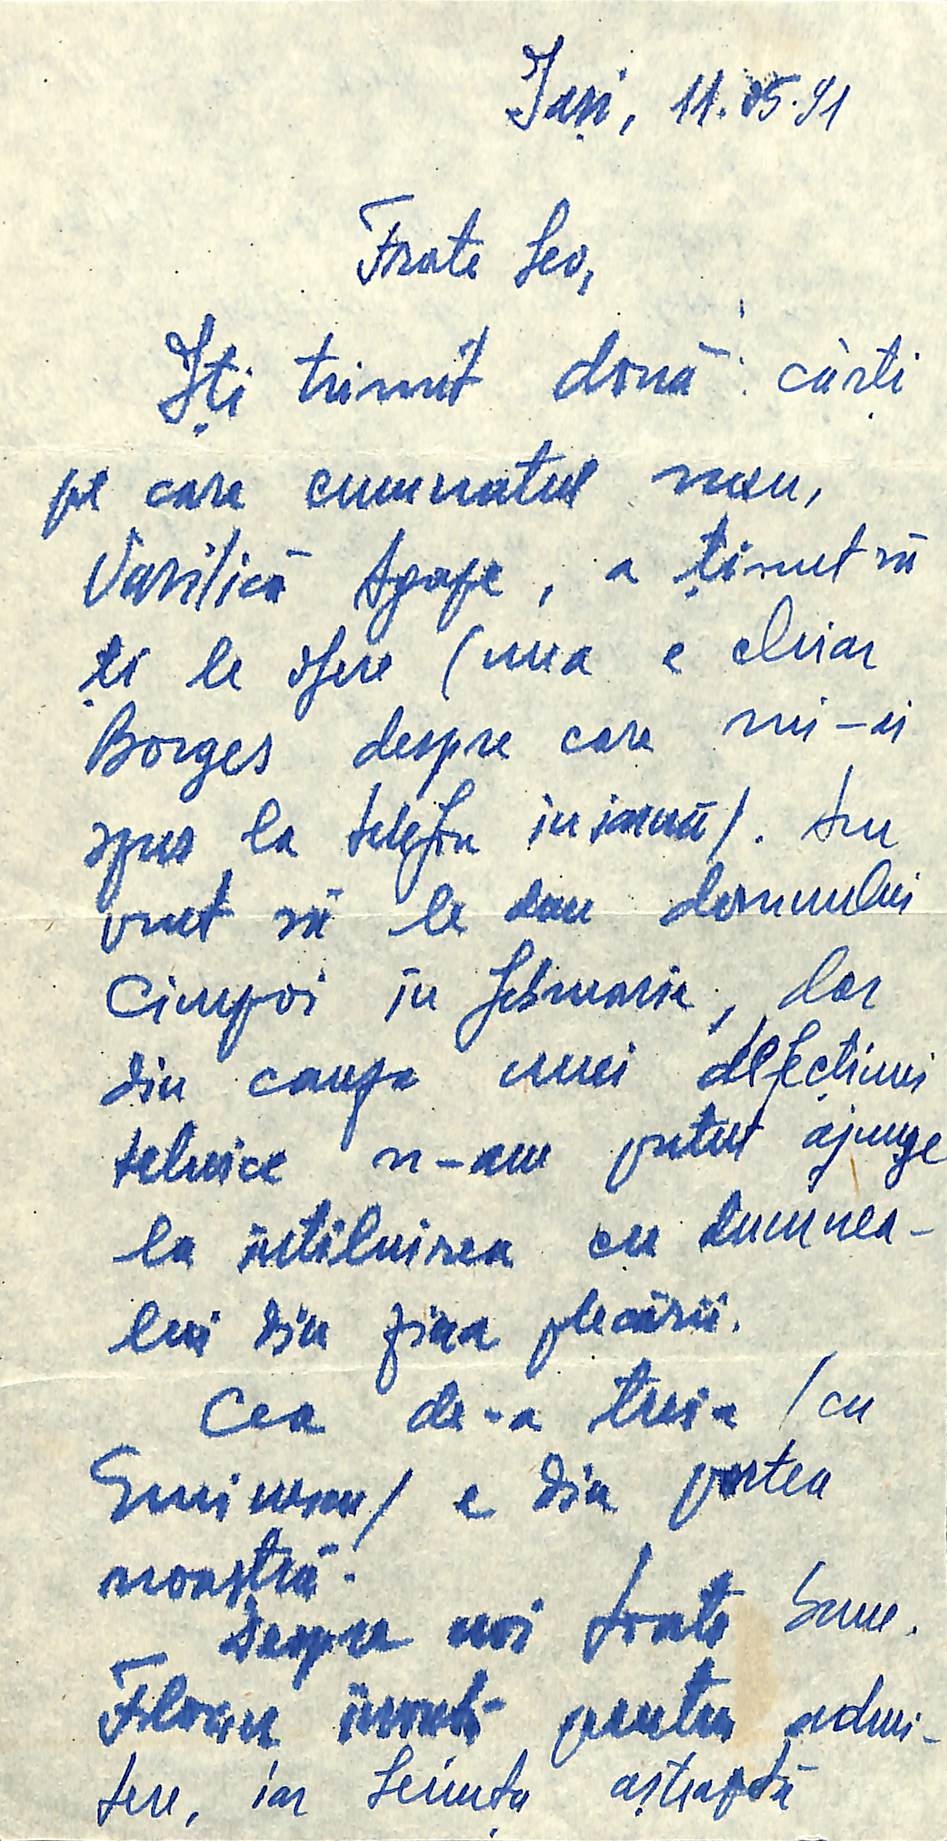 Iași, 11.05.91
Frate Leo,
Iți trimit două cărți
pe care cumnatul meu,
Vasilică Agape, a ținut să
ți le ofere (una e chiar
Borges despre care mi-ai
spus la telefon în iarnă). Am
vrut să le dau domnului
Cimpoi în februarie, dar
din cauza unei defecțiuni
tehnice n-am putut ajunge
la întîlnirea cu dumnea-
lui din ziua plecării.
Cea de-a treia (cu
Eminescu) e din partea
noastră.
Despre noi toate bune.
Florin învață pentru admi-
tere, iar Lenuța așteaptă